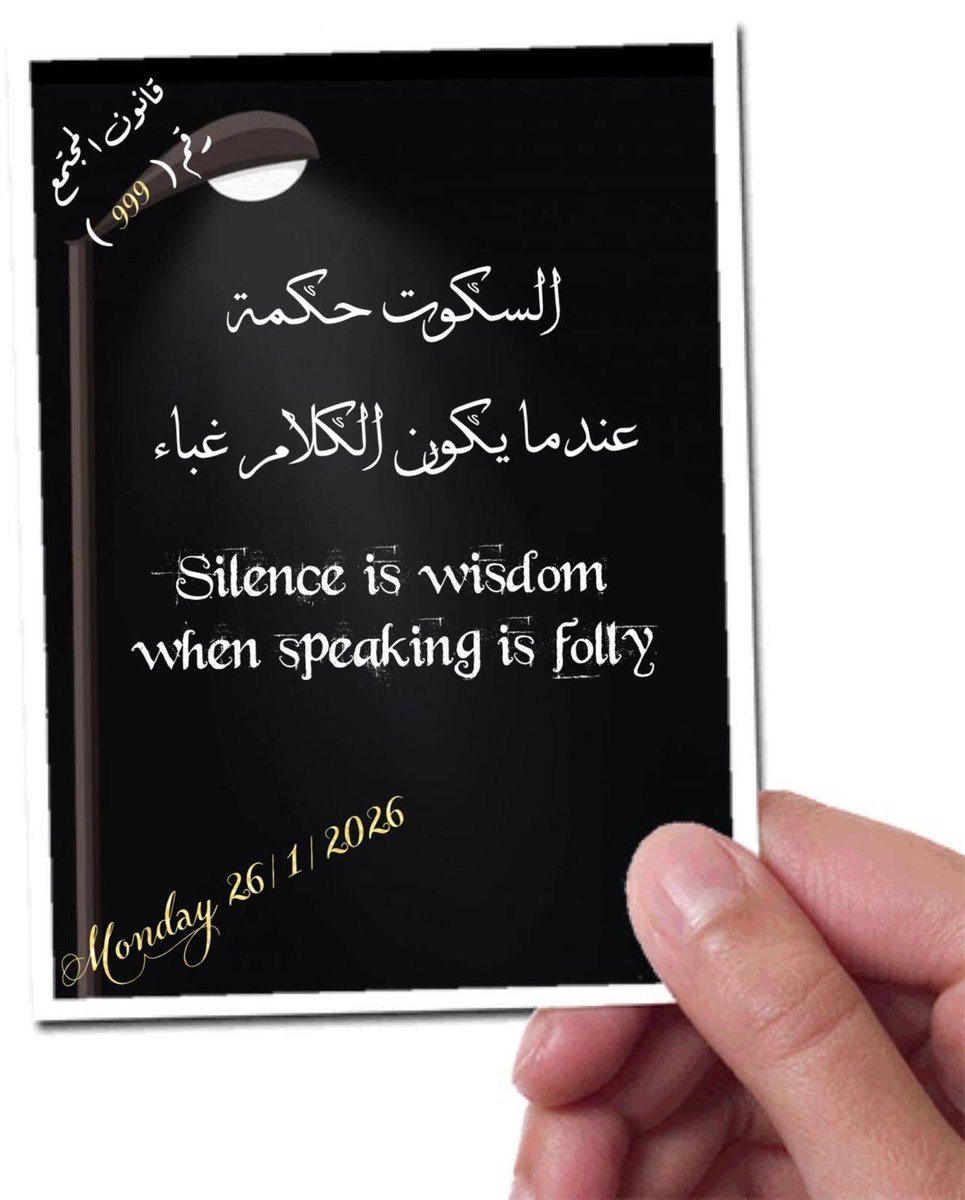 قانون المجتمع
رقم ( 999 )
السكوت حكمة
عندما يكون الكلام غباء
Silence is wisdom
when speaking is folly
Monday 26/1/2026